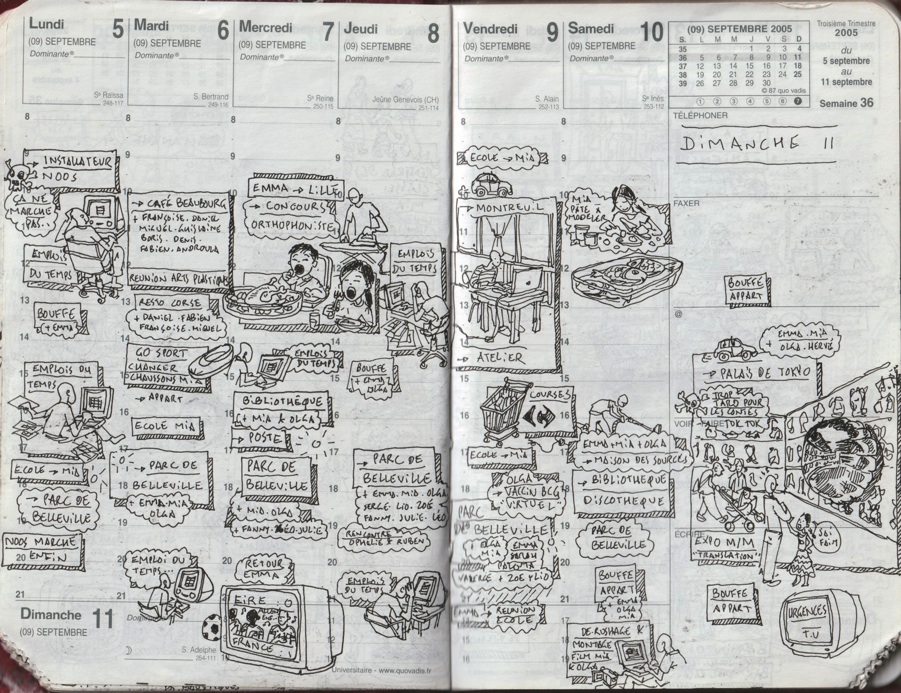 Lundi 5
(09) SEPTEMBRE
Dominante®
Se Raïssa
248-117
8
→ INSTALLATEUR
NOOS
ÇA NE
MARCHE
PAS..
EMPLOIS
DU TEMPS
13
BOUFFE
+ EMMA
14
EMPLOIS DU
TEMPS
16
17
ECOLE → MIA
→ PARC DE
BELLEVILLE
NOOS MARCHE
20 ENFIN
21
Dimanche 11
(09) SEPTEMBRE
Mardi 6
(09) SEPTEMBRE
Dominante®
S. Bertrand
249-116
8
9
→ CAFÉ BEAUBOURG
+ FRANÇOISE. DANIEL
MIGUEL. GUISLAINE
BORIS. DENIS.
FABIEN. ANDROULA
REUNION ARTS PLASTIQ
13
RESTO CORSE
+ DANIEL. FABIEN
FRANÇOISE. MIGUEL
14
GO SPORT
CHANGER
CHAUSSONS MIA
→ APPART
16
ECOLE MIA
17
→ PARC DE
BELLEVILLE
+ EMMA. MIA
OLGA
20
EMPLOI DU
TEMPS...
S. Adelphe
254-111
Mercredi 7
(09) SEPTEMBRE
Dominante®
Se Reine
250-115
8
9
EMMA → LILLE
→ CONCOURS
ORTHOPHONISTE
14
EMPLOIS
DU TEMPS
BIBLIOTHEQUE
+ MIA & OLGA
→ POSTE
PARC DE
BELLEVILLE
18
+ MIA. OLGA
+ FANNY
20
RETOUR
EMMA
EIRE 0
FRANCE 1
Jeudi 8
(09) SEPTEMBRE
Dominante®
Jeûne Genevois (CH)
251-114
8
9
EMPLOIS
DU TEMPS
14
BOUFFE
+ EMMA
OLGA
16
17
→ PARC DE
BELLEVILLE
+ EMMA. MIA. OLGA
SERGE. LIO. ZOÉ
FANNY. JULIE. LÉO
RENCONTRE
OPHELIE & RUBEN
20
EMPLOIS
DU TEMPS
Universitaire - www.quovadis.fr
Vendredi 9
(09) SEPTEMBRE
Dominante®
S. Alain
252-113
8
ECOLE → MIA
→ MONTREUIL
11
12
13
14
→ ATELIER
15
COURSES
16
ECOLE → MIA
OLGA
→ VACCIN BCG
VIRTUEL
PARC
BELLEVILLE
→ REUNION
ECOLE
Samedi 10
(09) SEPTEMBRE
Dominante®
Se Inès
253-112
8
9
MIA
PÂTE À
MODELER
12
13
14
15
16
EMMA + MIA + OLGA
→ MAISON DES SOURCES
→ BIBLIOTHEQUE
DISCOTHEQUE
PARC DE
BELLEVILLE
BOUFFE
APPART
+ EMMA
OLGA
MIA
DERUSHAGE &
MONTAGE
FILM MIA
& OLGA
(09) SEPTEMBRE 2005
S. L M M J V S D
35 1 2 3 4
36 5 6 7 8 9 10 11
37 12 13 14 15 16 17 18
38 19 20 21 22 23 24 25
39 26 27 28 29 30
© 87 quo vadis
1 2 3 4 5 6 7
Troisième Trimestre
2005
du
5 septembre
au
11 septembre
Semaine 36
TÉLÉPHONER
DIMANCHE 11
FAXER
BOUFFE
APPART
@
EMMA. MIA
+ OLGA. HERVÉ
→ PALAIS DE TOKYO
TROP
TARD POUR
LES CONTES
TOK TOK
ÉCRIRE
EXPO M/M
"TRANSLATION"
J'AI
FAIM
BOUFFE
APPART
URGENCES
T.V